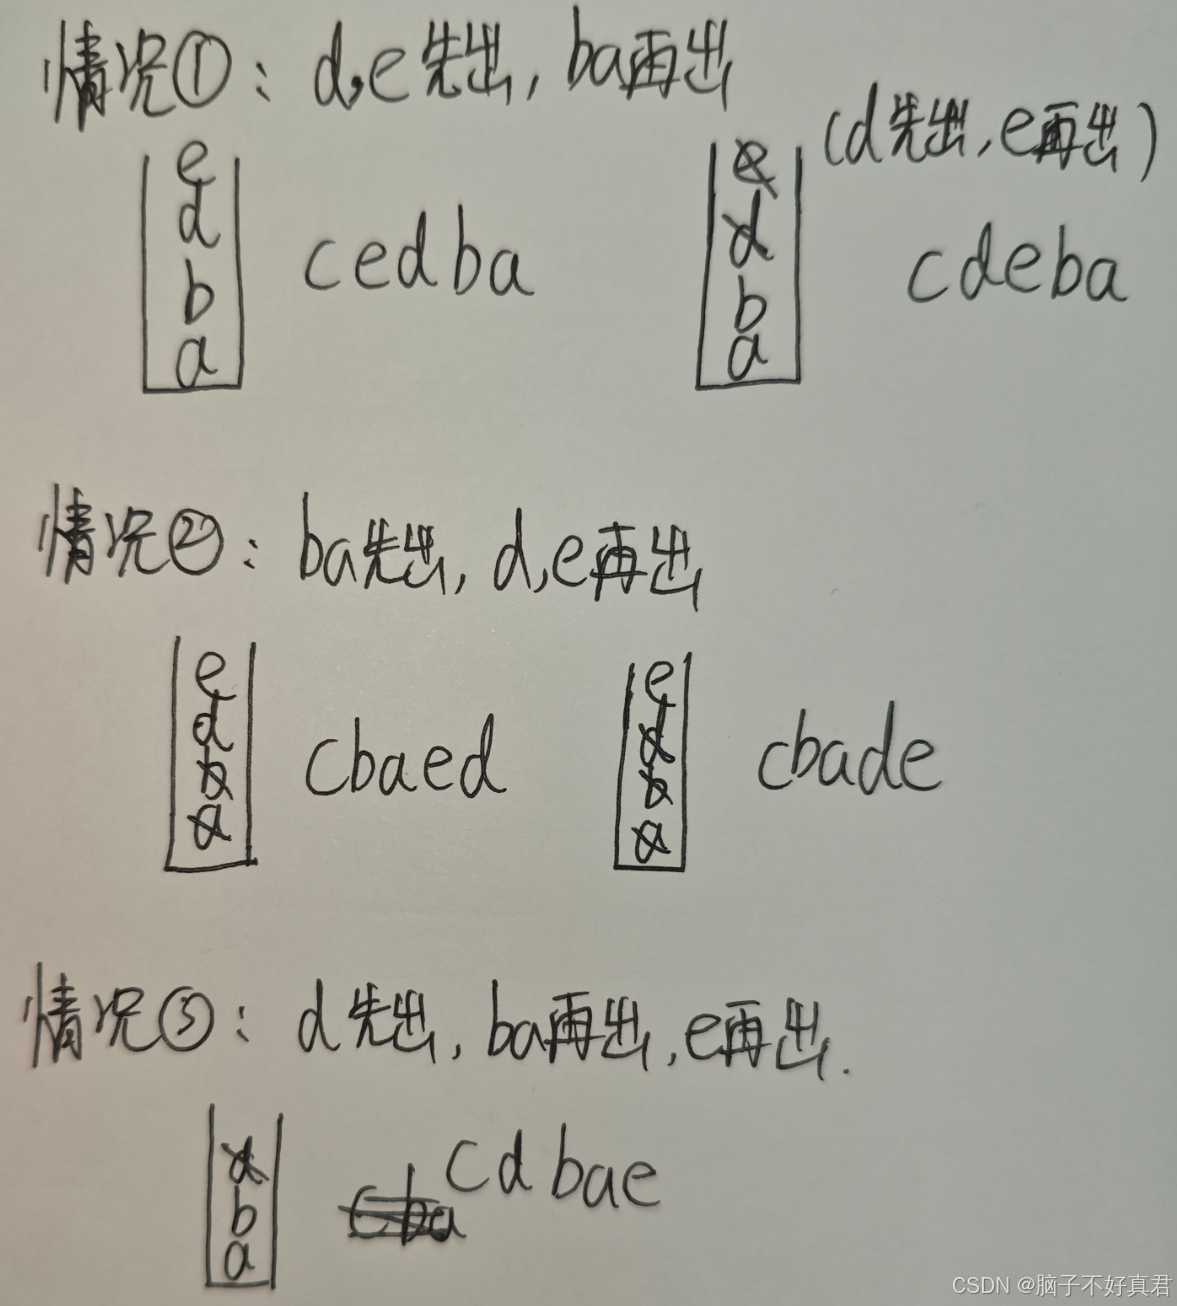 情况①：d,e先出，ba再出
(d先出，e再出)
e
d
b
a
cedba
e
d
b
a
cdeba
情况②：ba先出，d,e再出
e
d
b
a
cbaed
e
d
b
a
cbade
情况③：d先出，ba再出，e再出.
d
b
a
cba
cdbae
CSDN @脑子不好真君